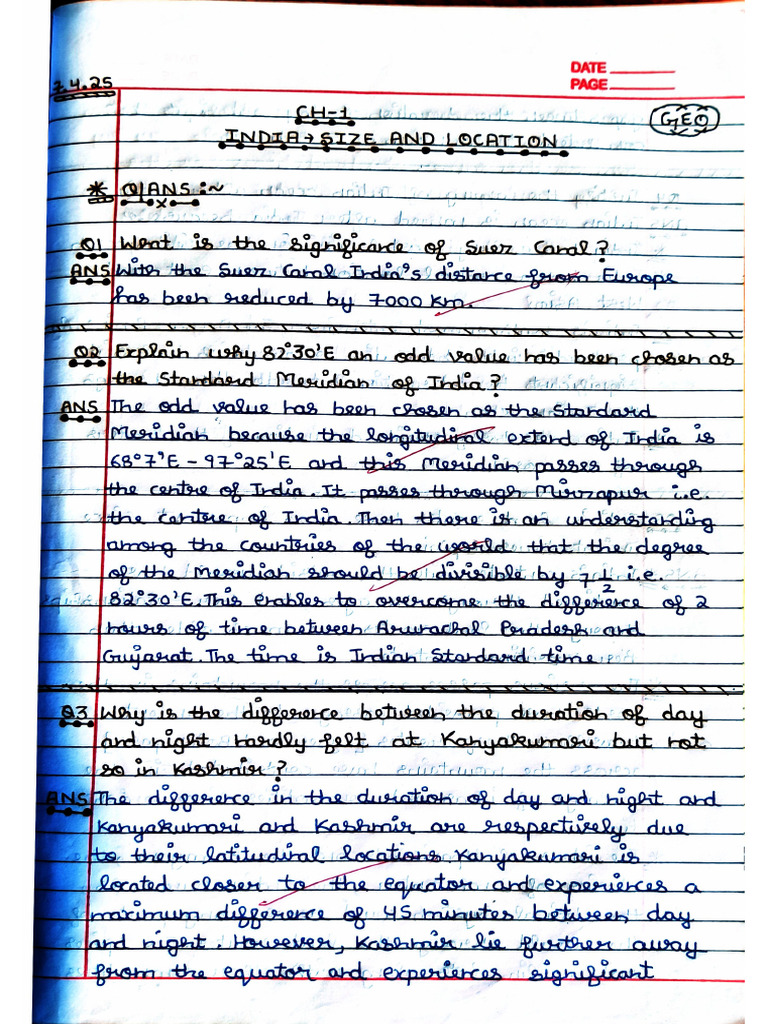 DATE
PAGE
7.4.25
CH-1
GEO
INDIA → SIZE AND LOCATION
* Q/ANS :~
Q1 What is the significance of Suez Canal?
ANS With the Suez Canal India's distance from Europe
has been reduced by 7000 Km.
Q2 Explain why 82°30'E an odd value has been chosen as
the Standard Meridian of India?
ANS The odd value has been chosen as the Standard
Meridian because the longitudinal extend of India is
68°7'E - 97°25'E and this Meridian passes through
the centre of India. It passes through Mirzapur i.e.
the centre of India. Then there is an understanding
among the countries of the world that the degree
of the Meridian should be divisible by 7 1/2 i.e.
82°30'E. This enables to overcome the difference of 2
hours of time between Arunachal Pradesh and
Gujarat. The time is Indian Standard time
Q3 Why is the difference between the duration of day
and night hardly felt at Kanyakumari but not
so in Kashmir?
ANS The difference in the duration of day and night and
Kanyakumari and Kashmir are respectively due
to their latitudinal locations Kanyakumari is
located closer to the equator and experiences a
maximum difference of 45 minutes between day
and night. However, Kashmir lie further away
from the equator and experiences significant